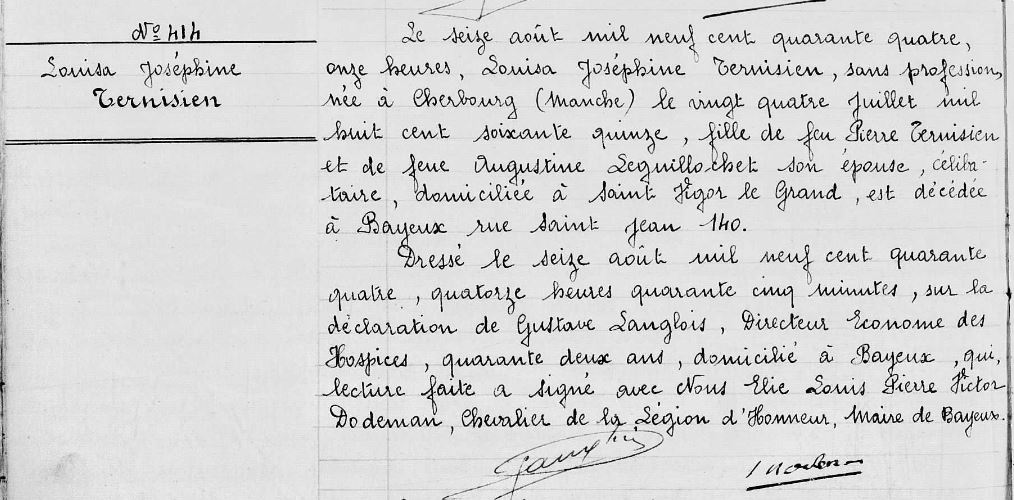 Nº 414
Louisa Joséphine
Ternisien
Le seize août mil neuf cent quarante quatre,
onze heures, Louisa Joséphine Ternisien, sans profession,
née à Cherbourg (Manche) le vingt quatre Juillet mil
huit cent soixante quinze, fille de feu Pierre Ternisien
et de feue Augustine Leguillochet son épouse, céliba-
taire, domiciliée à Saint Vigor le Grand, est décédée
à Bayeux rue Saint Jean 140.
Dressé le seize août mil neuf cent quarante
quatre, quatorze heures quarante cinq minutes, sur la
déclaration de Gustave Langlois, Directeur Econome des
Hospices, quarante deux ans, domicilié à Bayeux, qui,
lecture faite a signé avec Nous Elie Louis Pierre Victor
Dodeman, Chevalier de la Légion d'Honneur, Maire de Bayeux.